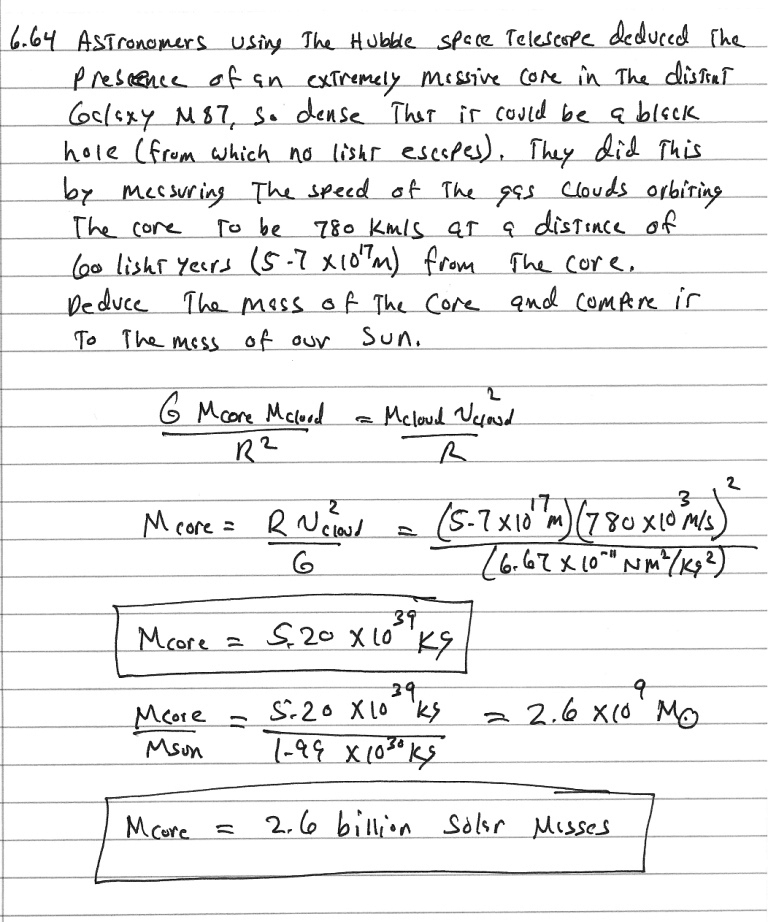 6.64 Astronomers using The Hubble space Telescope deduced The
Presence of an extremely massive core in The distant
Galaxy M87, so dense That it could be a black
hole (from which no light escapes). They did This
by measuring The speed of The gas clouds orbiting
The core To be 780 km/s at a distance of
60 light years (5.7 x10^17 m) from The core.
Deduce The mass of The Core and compare it
To The mess of our Sun.
G Mcore Mcloud / R^2 = Mcloud Vcloud^2 / R
Mcore = R Vcloud^2 / G = (5.7 x10^17 m)(780 x10^3 m/s)^2 / (6.67 x 10^-11 Nm^2/kg^2)
Mcore = 5.20 x10^39 kg
Mcore / Msun = 5.20 x10^39 kg / 1.99 x10^30 kg = 2.6 x10^9 M☉
Mcore = 2.6 billion Solar Masses